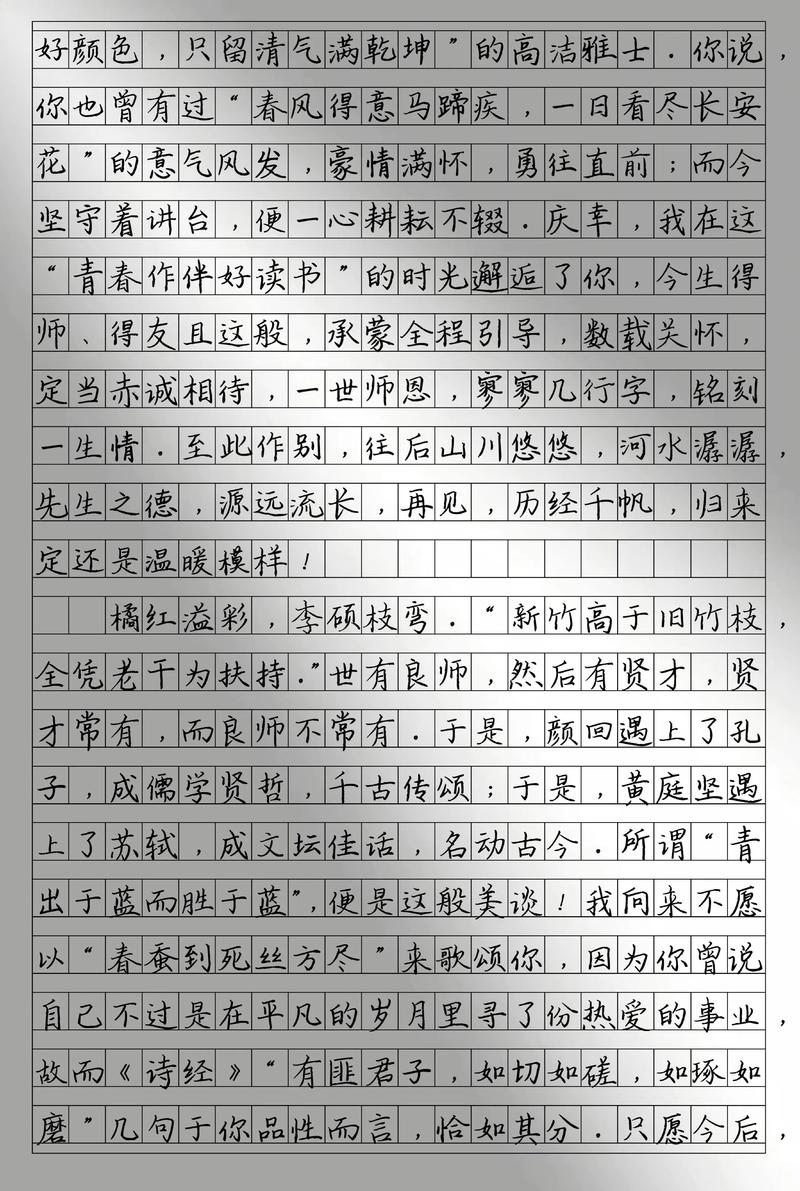 好颜色，只留清气满乾坤”的高洁雅士．你说，
你也曾有过“春风得意马蹄疾，一日看尽长安
花”的意气风发，豪情满怀，勇往直前；而今
坚守着讲台，便一心耕耘不辍．庆幸，我在这
“青春作伴好读书”的时光邂逅了你，今生得
师、得友且这般，承蒙全程引导，数载关怀，
定当赤诚相待，一世师恩，寥寥几行字，铭刻
一生情．至此作别，往后山川悠悠，河水潺潺，
先生之德，源远流长，再见，历经千帆，归来
定还是温暖模样！
橘红溢彩，李硕枝弯．“新竹高于旧竹枝，
全凭老干为扶持．”世有良师，然后有贤才，贤
才常有，而良师不常有．于是，颜回遇上了孔
子，成儒学贤哲，千古传颂；于是，黄庭坚遇
上了苏轼，成文坛佳话，名动古今．所谓“青
出于蓝而胜于蓝”，便是这般美谈！我向来不愿
以“春蚕到死丝方尽”来歌颂你，因为你曾说
自己不过是在平凡的岁月里寻了份热爱的事业，
故而《诗经》“有匪君子，如切如磋，如琢如
磨”几句于你品性而言，恰如其分．只愿今后，